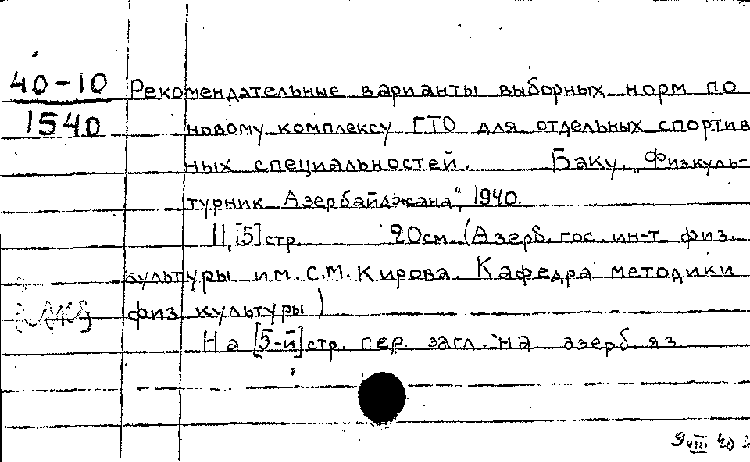 40-10
1540
Рекомендательные варианты выборных норм по
новому комплексу ГТО для отдельных спортив
ных специальностей. Баку, „Физкуль-
турник Азербайджана", 1940.
11, [5] стр. 20см. (Азерб. гос. ин-т физ.
культуры им. С.М. Кирова. Кафедра методики
физ культуры)
На [5-й] стр. пер. загл. на азерб. яз
9 VIII 40